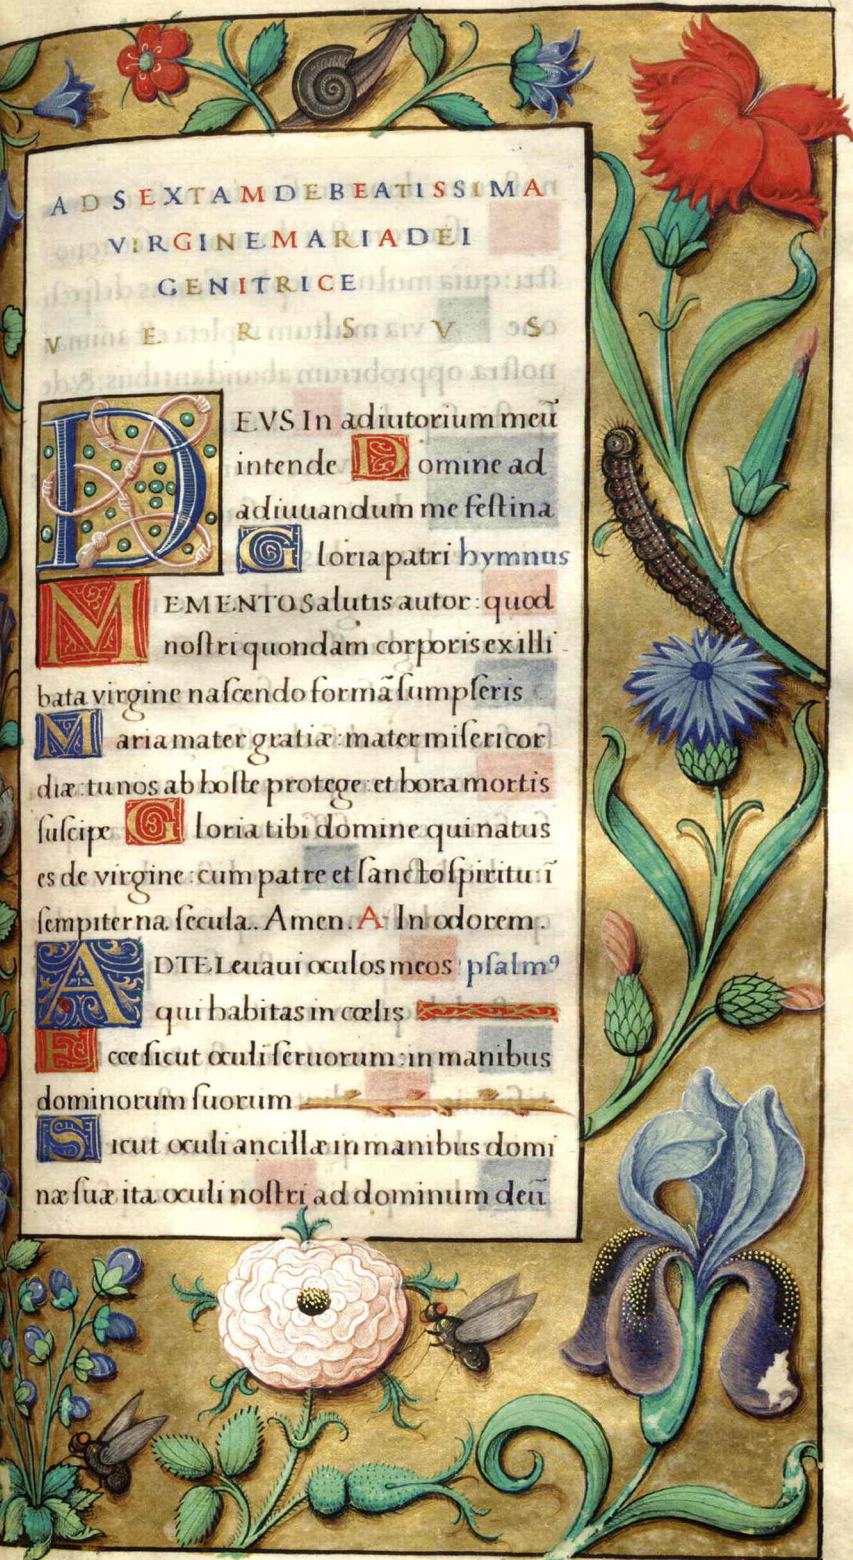 AD SEXTAM DE BEATISSIMA
VIRGINE MARIA DEI
GENITRICE
VERSVS
DEVS In adiutorium meū
intende Domine ad
adiuuandum me feſtina
Gloria patri hymnus
MEMENTO Salutis autor: quod
noſtri quondam corporis ex illi
bata virgine naſcendo formā ſumpſeris
Maria mater gratiæ: mater miſericor
diæ: tu nos ab hoſte protege: et hora mortis
ſuſcipe Gloria tibi domine qui natus
es de virgine: cum patre et ſancto ſpiritu: ī
ſempiterna ſecula.. Amen. A In odorem.
AD TE Leuaui oculos meos: pſalmꝰ
qui habitas in cœlis
Ecce ſicut oculi ſeruorum: in manibus
dominorum ſuorum
Sicut oculi ancillæ in manibus domi
næ ſuæ ita oculi noſtri ad dominum deū